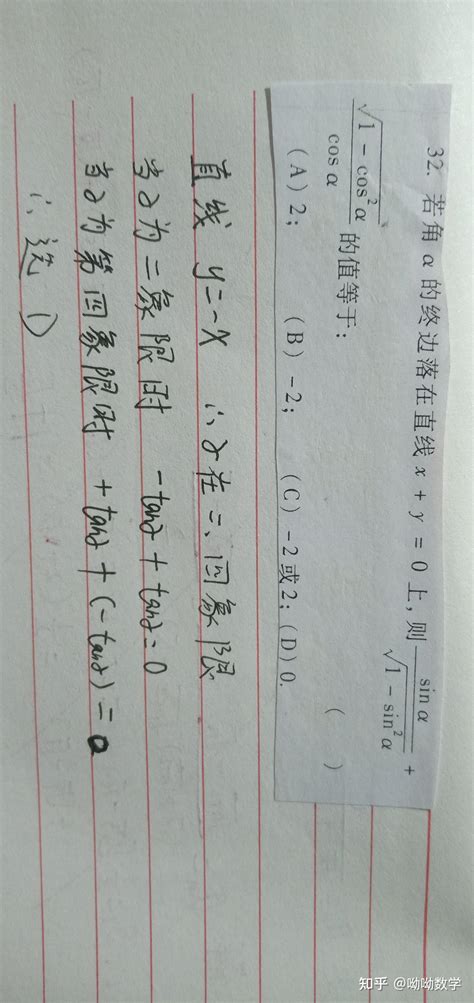 32. 若角 α 的终边落在直线 x + y = 0 上，则 \frac{sin α}{\sqrt{1 - sin² α}} +
\frac{\sqrt{1 - cos² α}}{cos α} 的值等于： （ ）
（A）2； （B）-2； （C）-2 或 2；（D）0.
直线 y=-x ∴ α在二、四象限
当α为二象限时 -tanα+tanα=0
当α为第四象限时 +tanα+(-tanα)=0
∴选 D
知乎 @呦呦数学